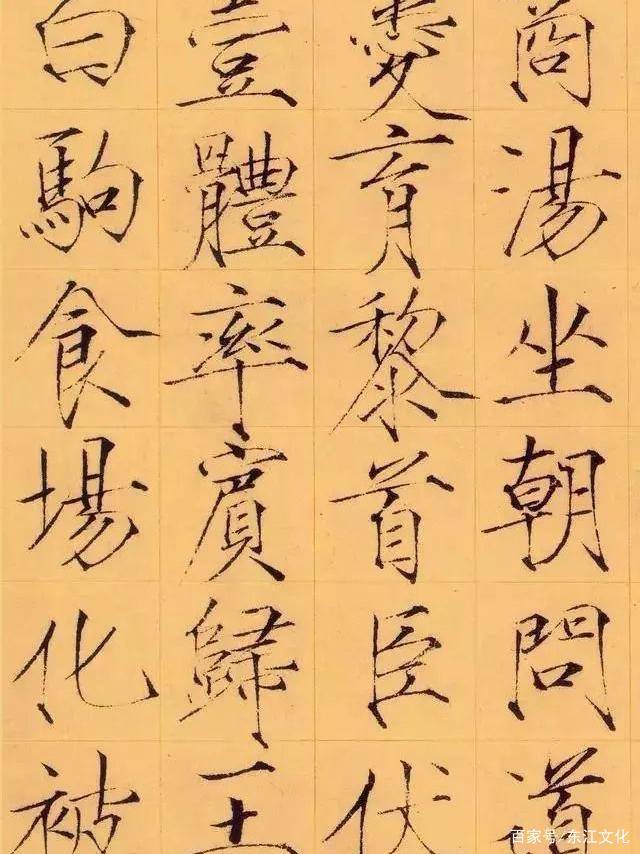 商湯坐朝問道
愛育黎首臣伏
壹體率賓歸王
白駒食場化被
百家号/东江文化